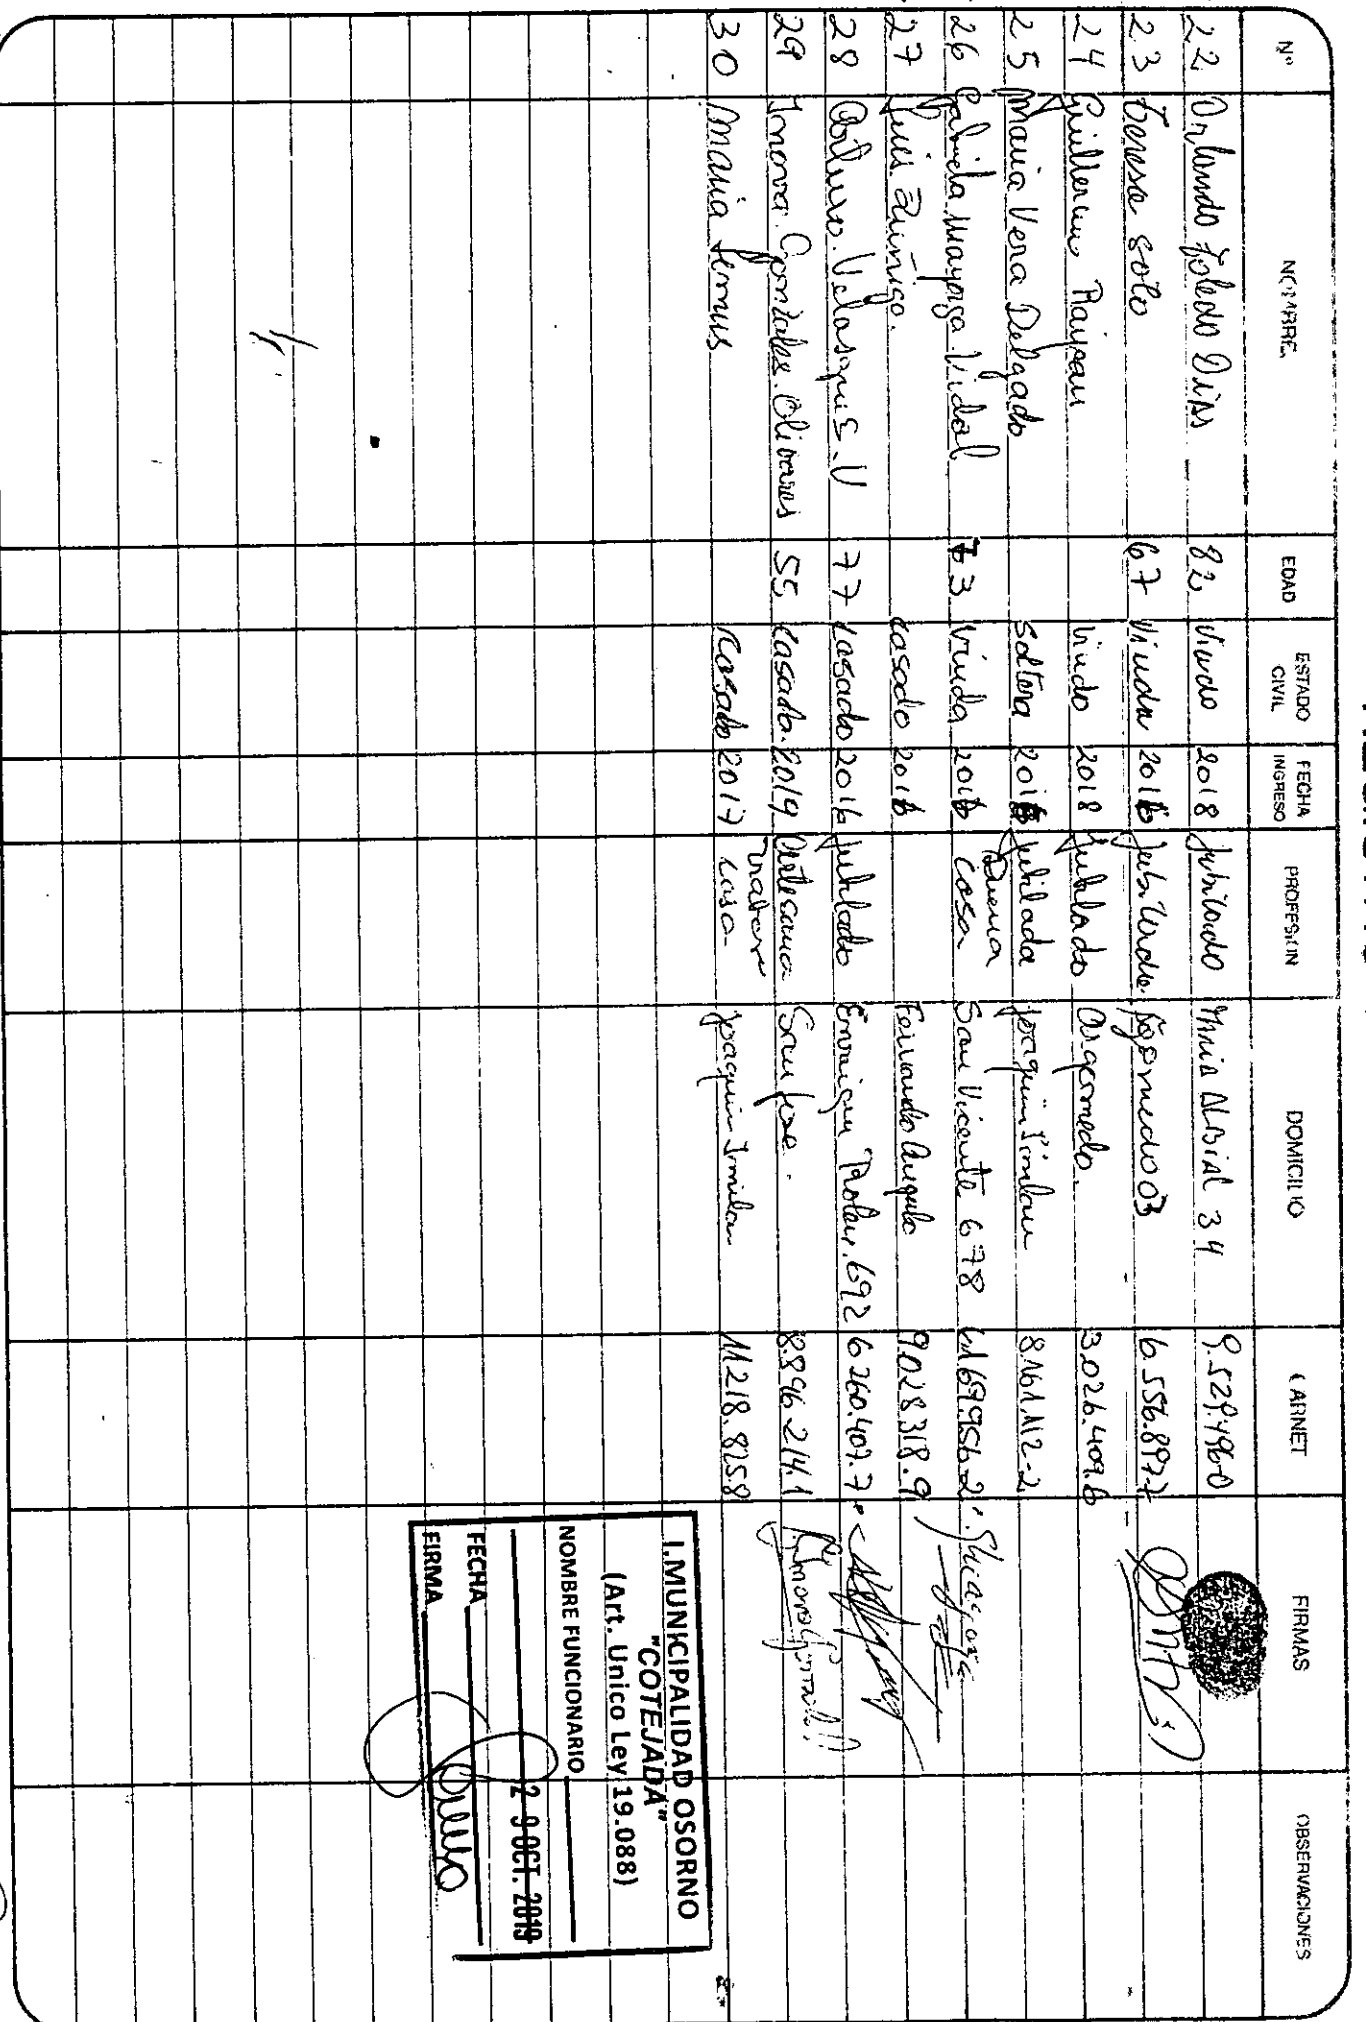 Nº NOMBRE EDAD ESTADO CIVIL FECHA INGRESO PROFESION DOMICILIO CARNET FIRMAS OBSERVACIONES
22 Orlando Toledo Dias 82 Viudo 2018 Jubilado Maria Albial 34 9.529.496-0
23 Teresa Soto 67 Viuda 2016 Argomedo 03 6.556.897-7
24 Guillermo Raipan Viudo 2018 Jubilado Argomedo. 3.026.409.6
25 Maria Vera Delgado Soltera Jubilada Joaquin 8.161.112-2
26 Gabriela Mayorga Vidal 73 Viuda 2016 Dueña casa San Vicente 678 6.169.956.2
27 Luis Zuñiga. casado 2016 Fernando Angulo 9.028.318.9
28 Velasques. V 77 casado 2016 Jubilado 692 6.260.407.7
29 Gonzales. Olivares 55 Casada. 2019 Artesana San Jose. 8.896.214.1
30 Maria Lemus Casado 2017 casa. Joaquin 11.218.825.8
I. MUNICIPALIDAD OSORNO
"COTEJADA"
(Art. Unico Ley 19.088)
NOMBRE FUNCIONARIO
29 OCT. 2019
FECHA
FIRMA